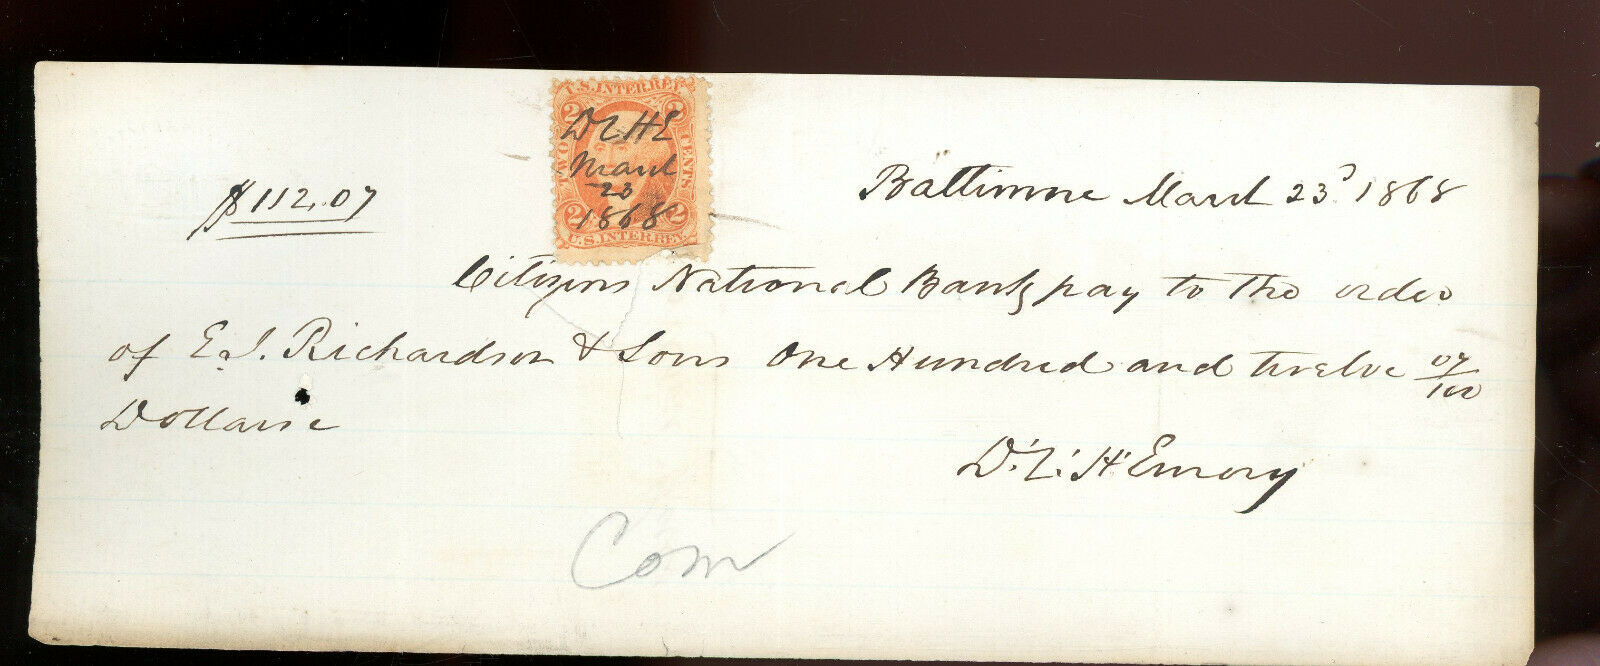 U.S. INTER. REV.
2 2
TWO CENTS
D L H E
March
23
1868
2 2
U.S. INTER. REV.
$112.07
Baltimore March 23d 1868
Citizens National Bank pay to the order
of E. J. Richardson & Sons One Hundred and twelve 07/100
Dollars
D. L. H Emory
Com